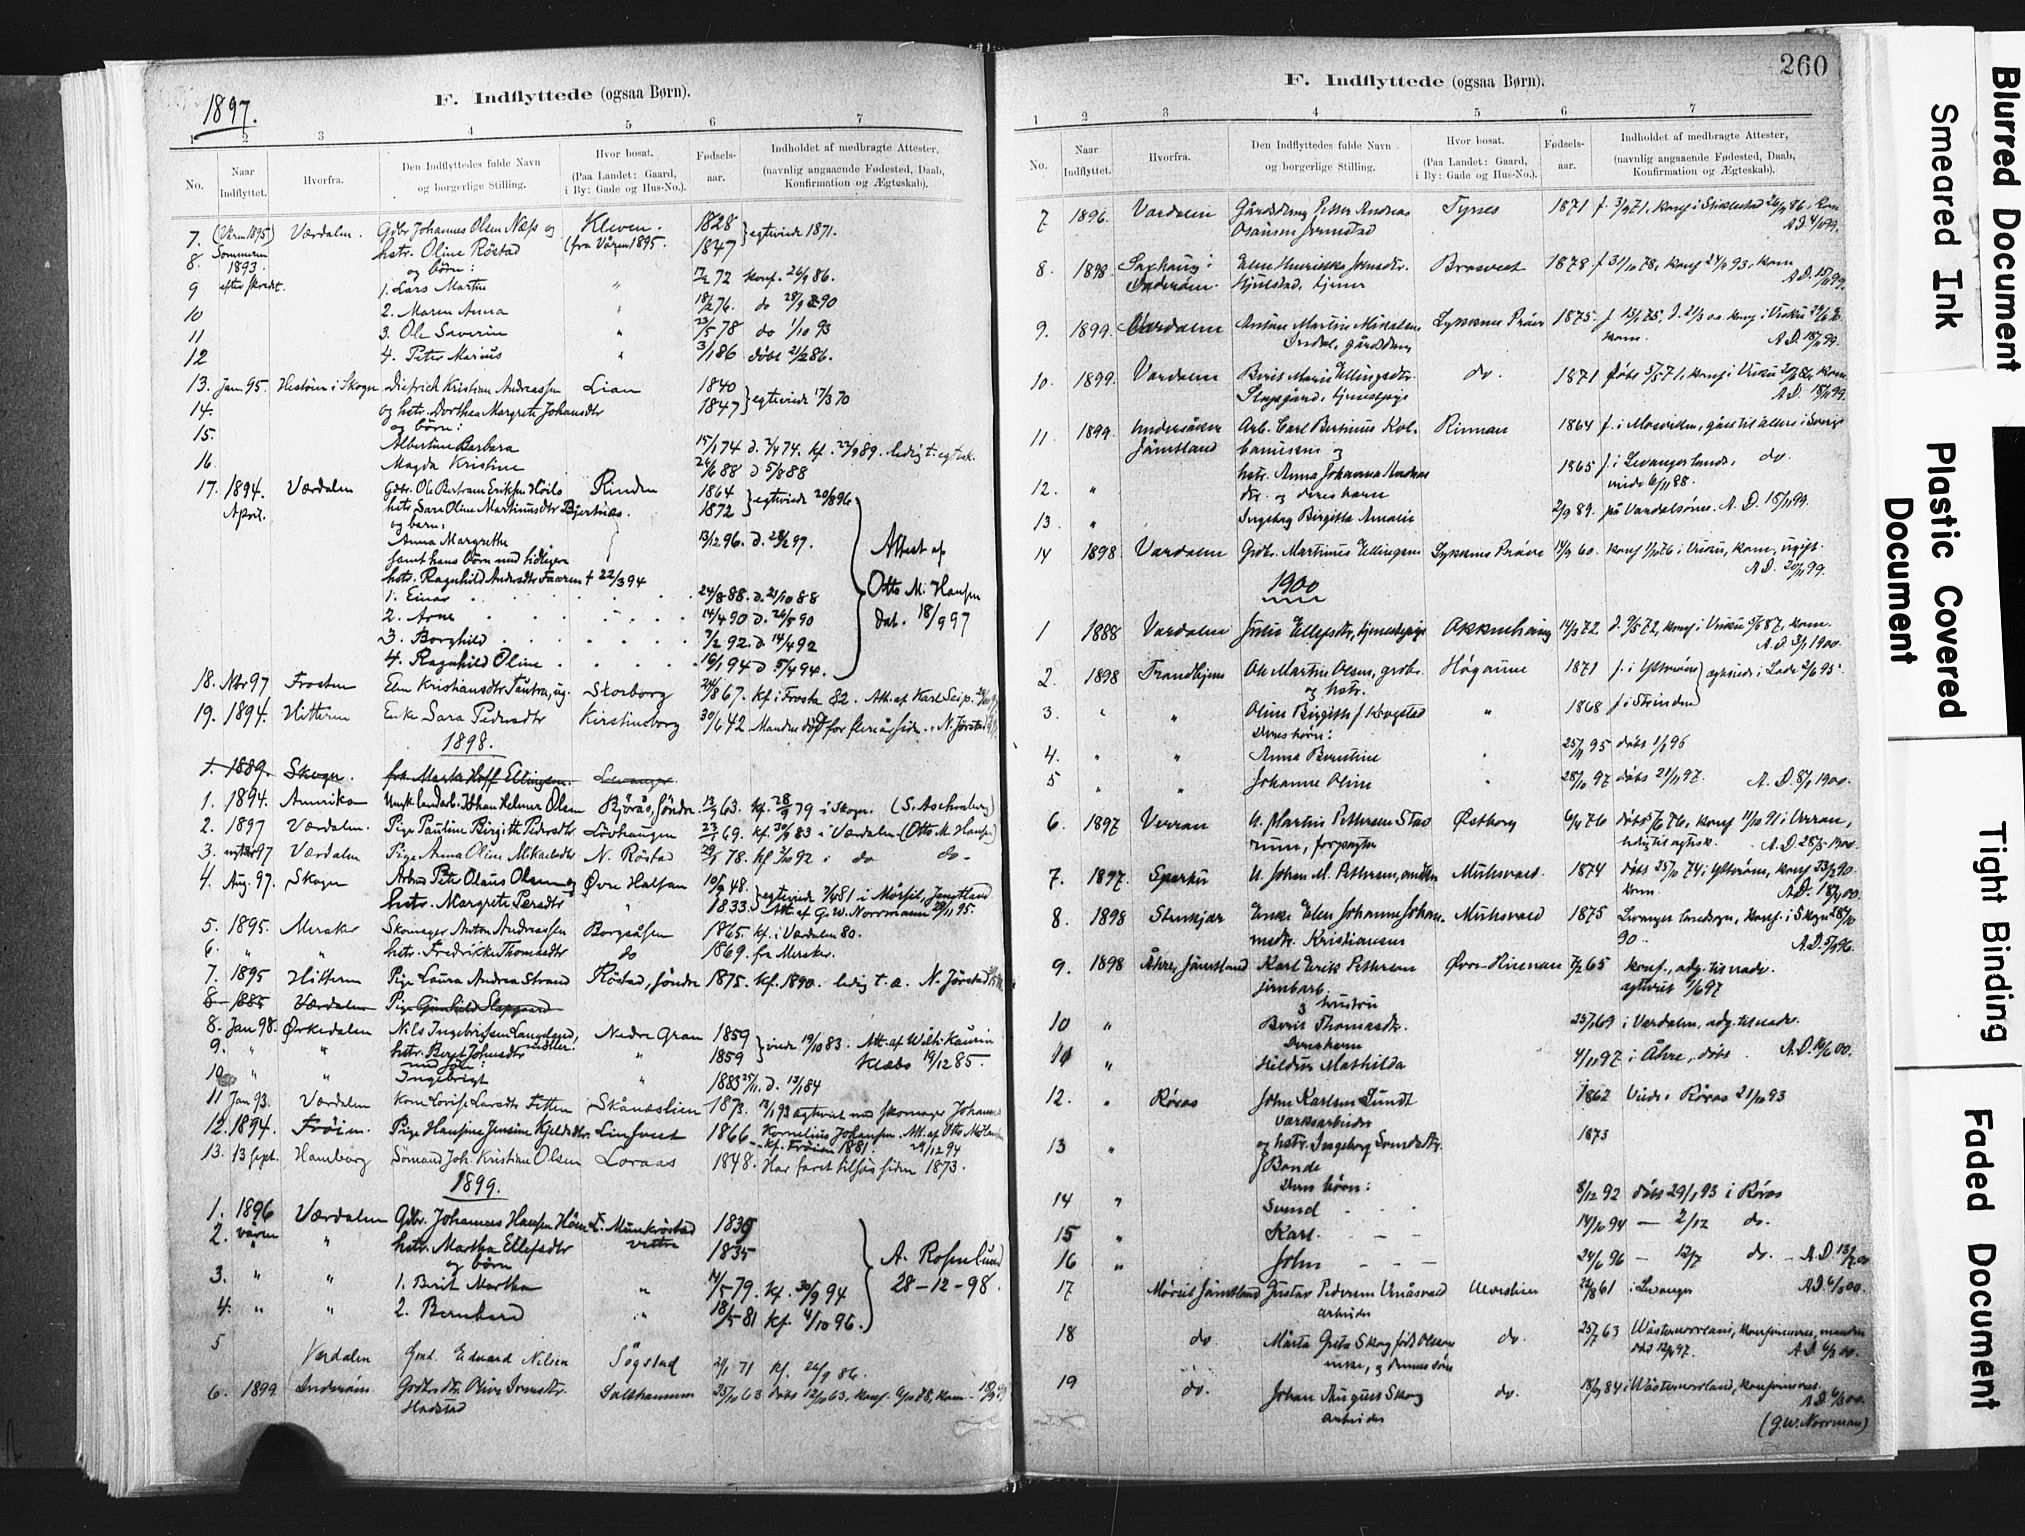 1897.
F. Indflyttede (ogsaa Børn).
1 2 3 4 5 6 7
No. Naar Indflyttet. Hvorfra. Den Indflyttedes fulde Navn og borgerlige Stilling. Hvor bosat. (Paa Landet: Gaard, i By: Gade og Hus-No.). Fødsels-aar. Indholdet af medbragte Attester, (navnlig angaaende Fødested, Daab, Konfirmation og Ægteskab).
7. (Våren 1895) Værdalen. Gdbr Johannes Olsen Næss og Kleven. 1828 } egteviede 1871.
8. Sommeren 1893. hstr. Oline Röstad (fra Våren 1895. 1847
og børn:
9 efter skredet. 1. Lars Martin " 72 konf. 26/9 86.
10 2. Maren Anna " 18/2 76. do 28/9 90
11 3. Ole Saverin " 23/5 78 do 1/10 93
12 4. Peter Marius " 3/1 86 døbt 21/2 86.
13. Jan. 95. i Skogn. Diedrich Kristian Andreassen Lian 1840 } egteviede 17/3 70
14. og hstr. Dorthea Margrete Johansdtr 1847
og børn:
15. Albertine Barbara 15/1 74 d. 7/4 74. kf. 22/9 89. ledig t. egtesk.
16 Magda Kristine 26/6 88 d 5/8 88
17. 1894. Værdalen Gdbr. Ole Bertram Eriksen Höilo Rinden 1864 } egteviede 20/8 96
April. hstr Sara Oline Martinusdtr Bjertnæs. 1872
og barn:
Anna Margrethe 13/12 96. d. 28/2 97.
samt hans børn med tidligere
hstr. Ragnhild Andersdtr Faaren † 22/3 94
1. Einar 24/8 88. d. 21/10 88
2. Arne 14/4 90 d. 26/5 90
3. Borghild 7/2 92. d. 14/4 92
4. Ragnhild Oline 16/1 94 d 5/4 94.
Attest af
Otto M. Hansen
dat. 18/9 97
18. Nbr 97 Frosten Elen Kristiansdtr Tautra, ug. Skorborg 24/8 67. kf i Frosta 82. Att. af Karl Seip.
19. 1894. Hitteren Enke Sara Pedersdtr Kirstinsborg 30/6 42. Manden död for flere år siden. N. Jørstad
1898.
1. 1889. Skogn. frk. Marta Hoff Ellingsen. Levanger.
1. 1894. Amerika Ungk landarb. Johan Helmer Olsen Bjørås, söndre 13/3 63. kf. 28/9 79 i Skogn. (S. Aschenberg)
2. 1897 Værdalen. Pige Pauline Birgitte Pedersdtr Lövhaugen 23/1 69. kf. 30/9 83 i Værdalen (Otto M. Hansen)
3. 97 Værdalen Pige Anna Oline Mikaelsdtr N. Röstad 29/5 78. kf 2/10 92 i do do
4. Aug. 97. Skogn Arbmd Peter Olaus Olsen og Øvre Halsan 10/9 48. } egteviede 81 i Mörsil, Jemtland
hstr. Margrete Persdtr " 1833. Att. af G. W. Norrmann 29/11 95.
5. 1895. Meraker Skomager Anton Andreassen Borgsåsen 1865. kf. i Værdalen 80.
6. " " hstr. Fredrikke Thomasdtr do 1869. fra Meraker.
7. 1895 Hitteren Pige Laura Andrea Strand Röstad, söndre 1875. kf. 1890. ledig t. æ. N. Jørstad
8 1885 Værdalen Pige Gunhild Slapgaard
8. Jan 98. Ørkedalen Nils Ingebrigtsen Langeland, møller. Nedre Gran 1859 } viede 19/10 83. Att. af Wilh. Kaurin
9. " " hstr. Berit Johnsdtr 1859 Klæbo 19/12 85.
med søn:
10 " " Ingebrigt " 1883 25/11. d. 13/1 84
11 Jan 93. Værdalen Kone Lovise Larsdtr Fætten Skånæslien 1873. 13/1 93 egteviet med skomager Johannes
12. 1894. Fröien. Pige Hansine Jensine Kjeldsdtr Linsvest 1866 Kornelius Johansen. Att. af Otto M. Hansen
kf. Fröien 1881. 29/12 94
13. 13 Sept. Hamborg Sömand Joh. Kristian Olsen Loraas 1848. Har faret tilsjös siden 1873.
1899.
1. 1896 Værdalen Gdbr. Johannes Hansen L. Munkröstad 1835
2. våren " hstr. Martha Ellefsdtr vestre 1835
og børn
3. " " 1. Berit Martha " 14/5 79. kf. 30/9 94
4. " " 2. Bernhard " 18/5 81 kf. 4/10 96.
A. Rosenlund
28-12-98.
5 Værdalen Gmd. Edvard Nilsen Søgstad 21/1 71 kf. 26/9 86.
6. 1899 Inderøen Olive Salthammer 23/10 63 døbt 12/10 63, konf. 78, kom.
Hadstad
260
F. Indflyttede (ogsaa Børn).
1 2 3 4 5 6 7
No. Naar Indflyttet. Hvorfra. Den Indflyttedes fulde Navn og borgerlige Stilling. Hvor bosat. (Paa Landet: Gaard, i By: Gade og Hus-No.). Fødsels-aar. Indholdet af medbragte Attester, (navnlig angaaende Fødested, Daab, Konfirmation og Ægteskab).
7 1896. Værdalen Gårddreng Petter Andreas Tynes 1871 f. 3/9 71, konf i Stiklestad 26/9 86, kom
A.D. 4/10 99.
8. 1898 Saxhaug i Elen Henrikka Johnsdtr. Brosveet 1878 f 31/10 78, konf 24/9 93, kom
Inderøen. Hjulstad, tjener A.D. 15/11 99.
9. 1899. Værdalen Anton Martin Mikalsen Lyssenes Prøven 1875. f 15/1 75, d. 21/3 konf i Vuku
Indal, gårddreng kom. A.D. 18/11 99.
10. 1899. Værdalen Berit Marie Ellingsdtr. do. 1871 Døbt 5/5 71, konf i Vuku 86, kom.
Slapgård, tjenestepige A.D. 18/11 99.
11. 1899. Undersåker Arb. Carl Bertinus Kol- Rinnan 1864 f. i Mosviken, gået til alters i Sverige
Jämtland banussen og
12. " hstr. Anna Johanna 1865 f. i Levanger lands. do.
dtr. og deres barn viede 6/11 88.
13. " Ingeborg Birgitta Amalie 2/9 89. på Værdalsøren. A.D. 15/11 99.
14 1898. Værdalen Grdbr. Martinus Ellingsen Lyssenes Prøven 14/9 60. konf 76 i Vuku, kom, ugift.
A.D. 20/11 99.
1900
1 1888 Værdalen Ellefsdtr, tjenestepige Okkenhaug 14/3 72 d. 72, konf i Vuku 87, kom.
A.D. 3/1 1900.
2. 1898 Trondhjem Ole Martin Olsen, grdbr. Høgaune 1871 f. i Ytterøen } egteviede i Lade 95.
og hstr.
3. " " Oline Birgitte f. Krogstad " 1868 f. i Strinden
Deres børn:
4. " " Anna Bertine " 25/11 95 døbt 1/1 96
5 " " Johanna Oline " 28/10 97 døbt 21/11 97. A.D. 8/1 1900.
6. 1897 Verran U. Martin Pettersen Stav Østborg 6/4 76 døbt 5/6 76, konf 11/10 91 i Verran,
forpagter ledig til egtesk. A.D. 28/3 1900.
7. 1897. Sparbu U. Johan M. Pettersen, Mulesvald. 1874 døbt 25/10 74 i Ytterøen, konf 90
kom. A.D. 18/4 00.
8. 1898 Stenkjær Enke Elen Johanna Johan- Mulesvald 1875 Levanger landsogn, konf. i Skogn
nesdtr. Kristiansen 90. A.D. 5/9 96.
9. 1898 Åhre, Jämtland Karl Erik Pettersen Øvre Hirenan 7/2 65 konf., adg. til nadv.
jernbarb. egteviet 7/6 97
og hustru
10 " Berit Thomasdtr. 25/1 69 i Værdalen, adg. til nadv.
Deres barn
11 " Heldur Mathilda 4/11 97 i Åhre, døbt. A.D. 16/6 00.
12. " Røros John Karlsen Sundt 1862 Viede i Røros 21/10 93
Verksarbeider
13 " og hstr. Ingeborg Svendsdtr. 1873
f Bonde
Deres børn:
14 " Svend 8/12 92 døbt 29/1 93 i Røros
15 " Karl. 14/10 94 — 2/12 do.
16 " John 24/6 96 — 12/7 do. — A.D. 13/7 00
17 Mörsil Jämtland Gustav Pedersen Ulvåsvald 22/8 61 i Levanger A.D. 6/8 00.
arbeider
18 do. Märta Greta Skog født Olsson do. 25/7 63 Västernorrland, konfirmeret, manden
enke, og dennes søn død 12/9 97. A.D. 6/8 00.
19 do. Johan August Skog do. 18/9 84 i Västernorrland, konfirmeret.
arbeider A.D. 6/8 00.
(G.W. Norrman)
Blurred Document
Smeared Ink
Plastic Covered Document
Tight Binding
Faded Document